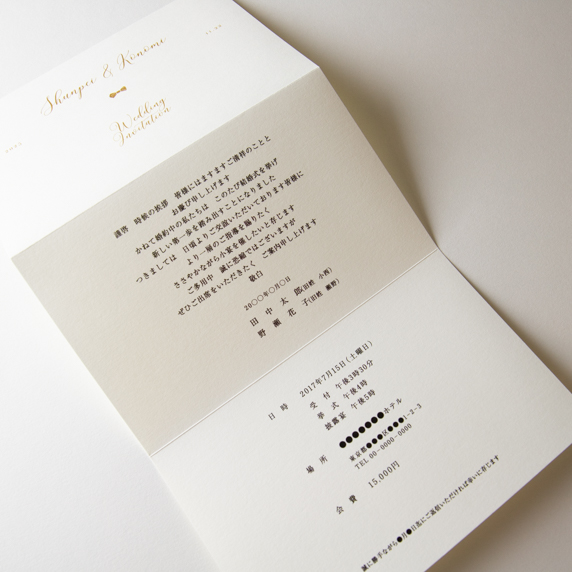 Shunpei & Konomi
Wedding
Invitation
謹啓　時候の挨拶　皆様にはますますご清祥のことと
お慶び申し上げます
かねて婚約中の私たちは　このたび結婚式を挙げ
新しい第一歩を踏み出すことになりました
つきましては　日頃よりご交誼いただいております皆様に
より一層のご指導を賜りたく
ささやかながら小宴を催したいと存じます
ご多用中　誠に恐縮ではございますが
ぜひご出席をいただきたく　ご案内申し上げます
敬白
20〇〇年〇月〇日
田 中 太 郎(旧姓 小西)
野 瀬 花 子(旧姓 瀬野)
日 時　2017年7月15日(土曜日)
受 付　午後3時30分
挙 式　午後4時
披露宴　午後5時
場 所　●●●●●●●ホテル
東京都●●●区●●●1-2-3
TEL 00-0000-0000
会 費　15,000円
誠に勝手ながら●月●日迄にご返信いただければ幸いに存じます